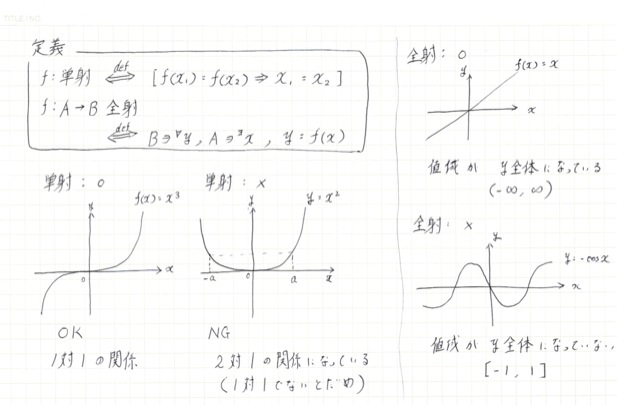 TITLE / NO.
定義
f:単射 ⇔def [f(x₁)=f(x₂) ⇒ x₁=x₂]
f:A→B 全射
⇔def B∋∀y, A∋∃x, y=f(x)
単射:○
f(x)=x³
y
x
0
OK
1対1の関係
単射:×
y=x²
y
-a
0
a
x
NG
2対1の関係になっている
(1対1でないとだめ)
全射:○
f(x)=x
y
x
値域が y全体になっている
(-∞, ∞)
全射:×
y
y=-cosx
x
値域が y全体になっていない
[-1, 1]